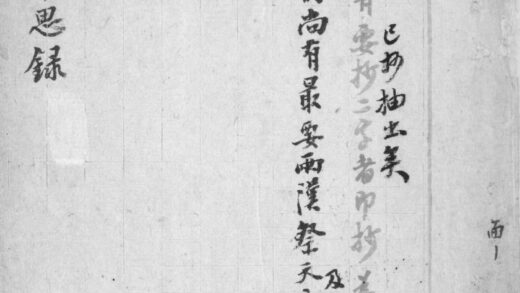 雨
已抄抽出矣
有要抄二字者即抄
尚有最要兩漢祭天
及
思録